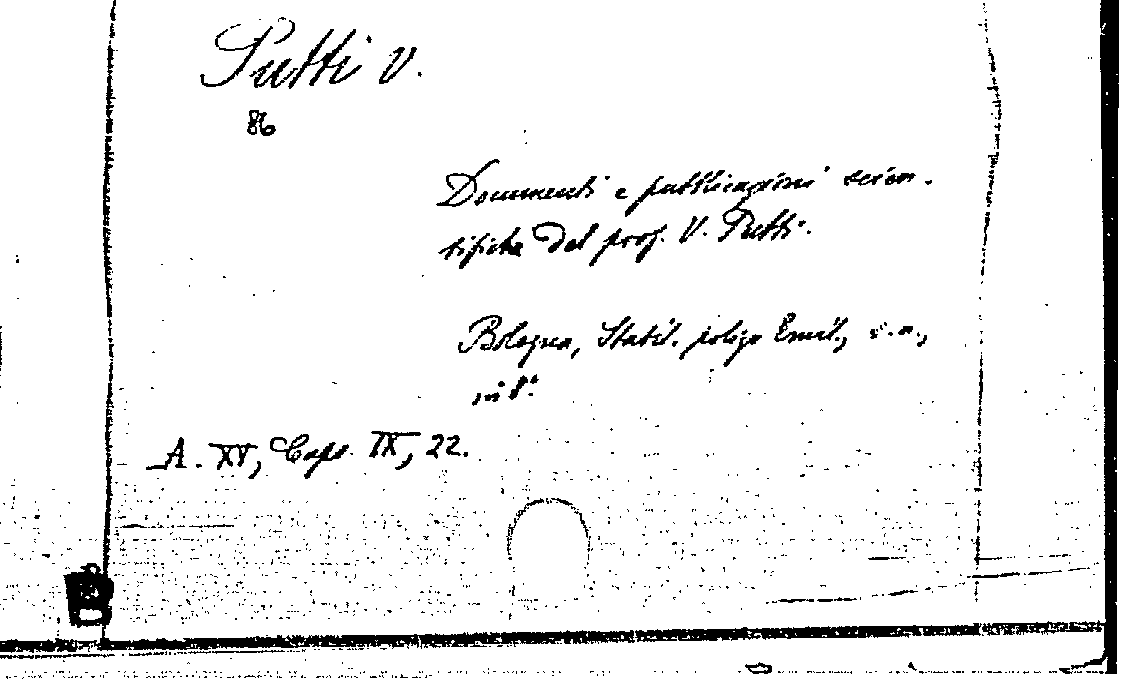 Putti V.
86
Documenti e pubblicazioni scien-
tifiche del prof. V. Putti.
Bologna, Stabil. poligr. Emil., s.a.,
in 8°.
A. XV, Caps. IX, 22.